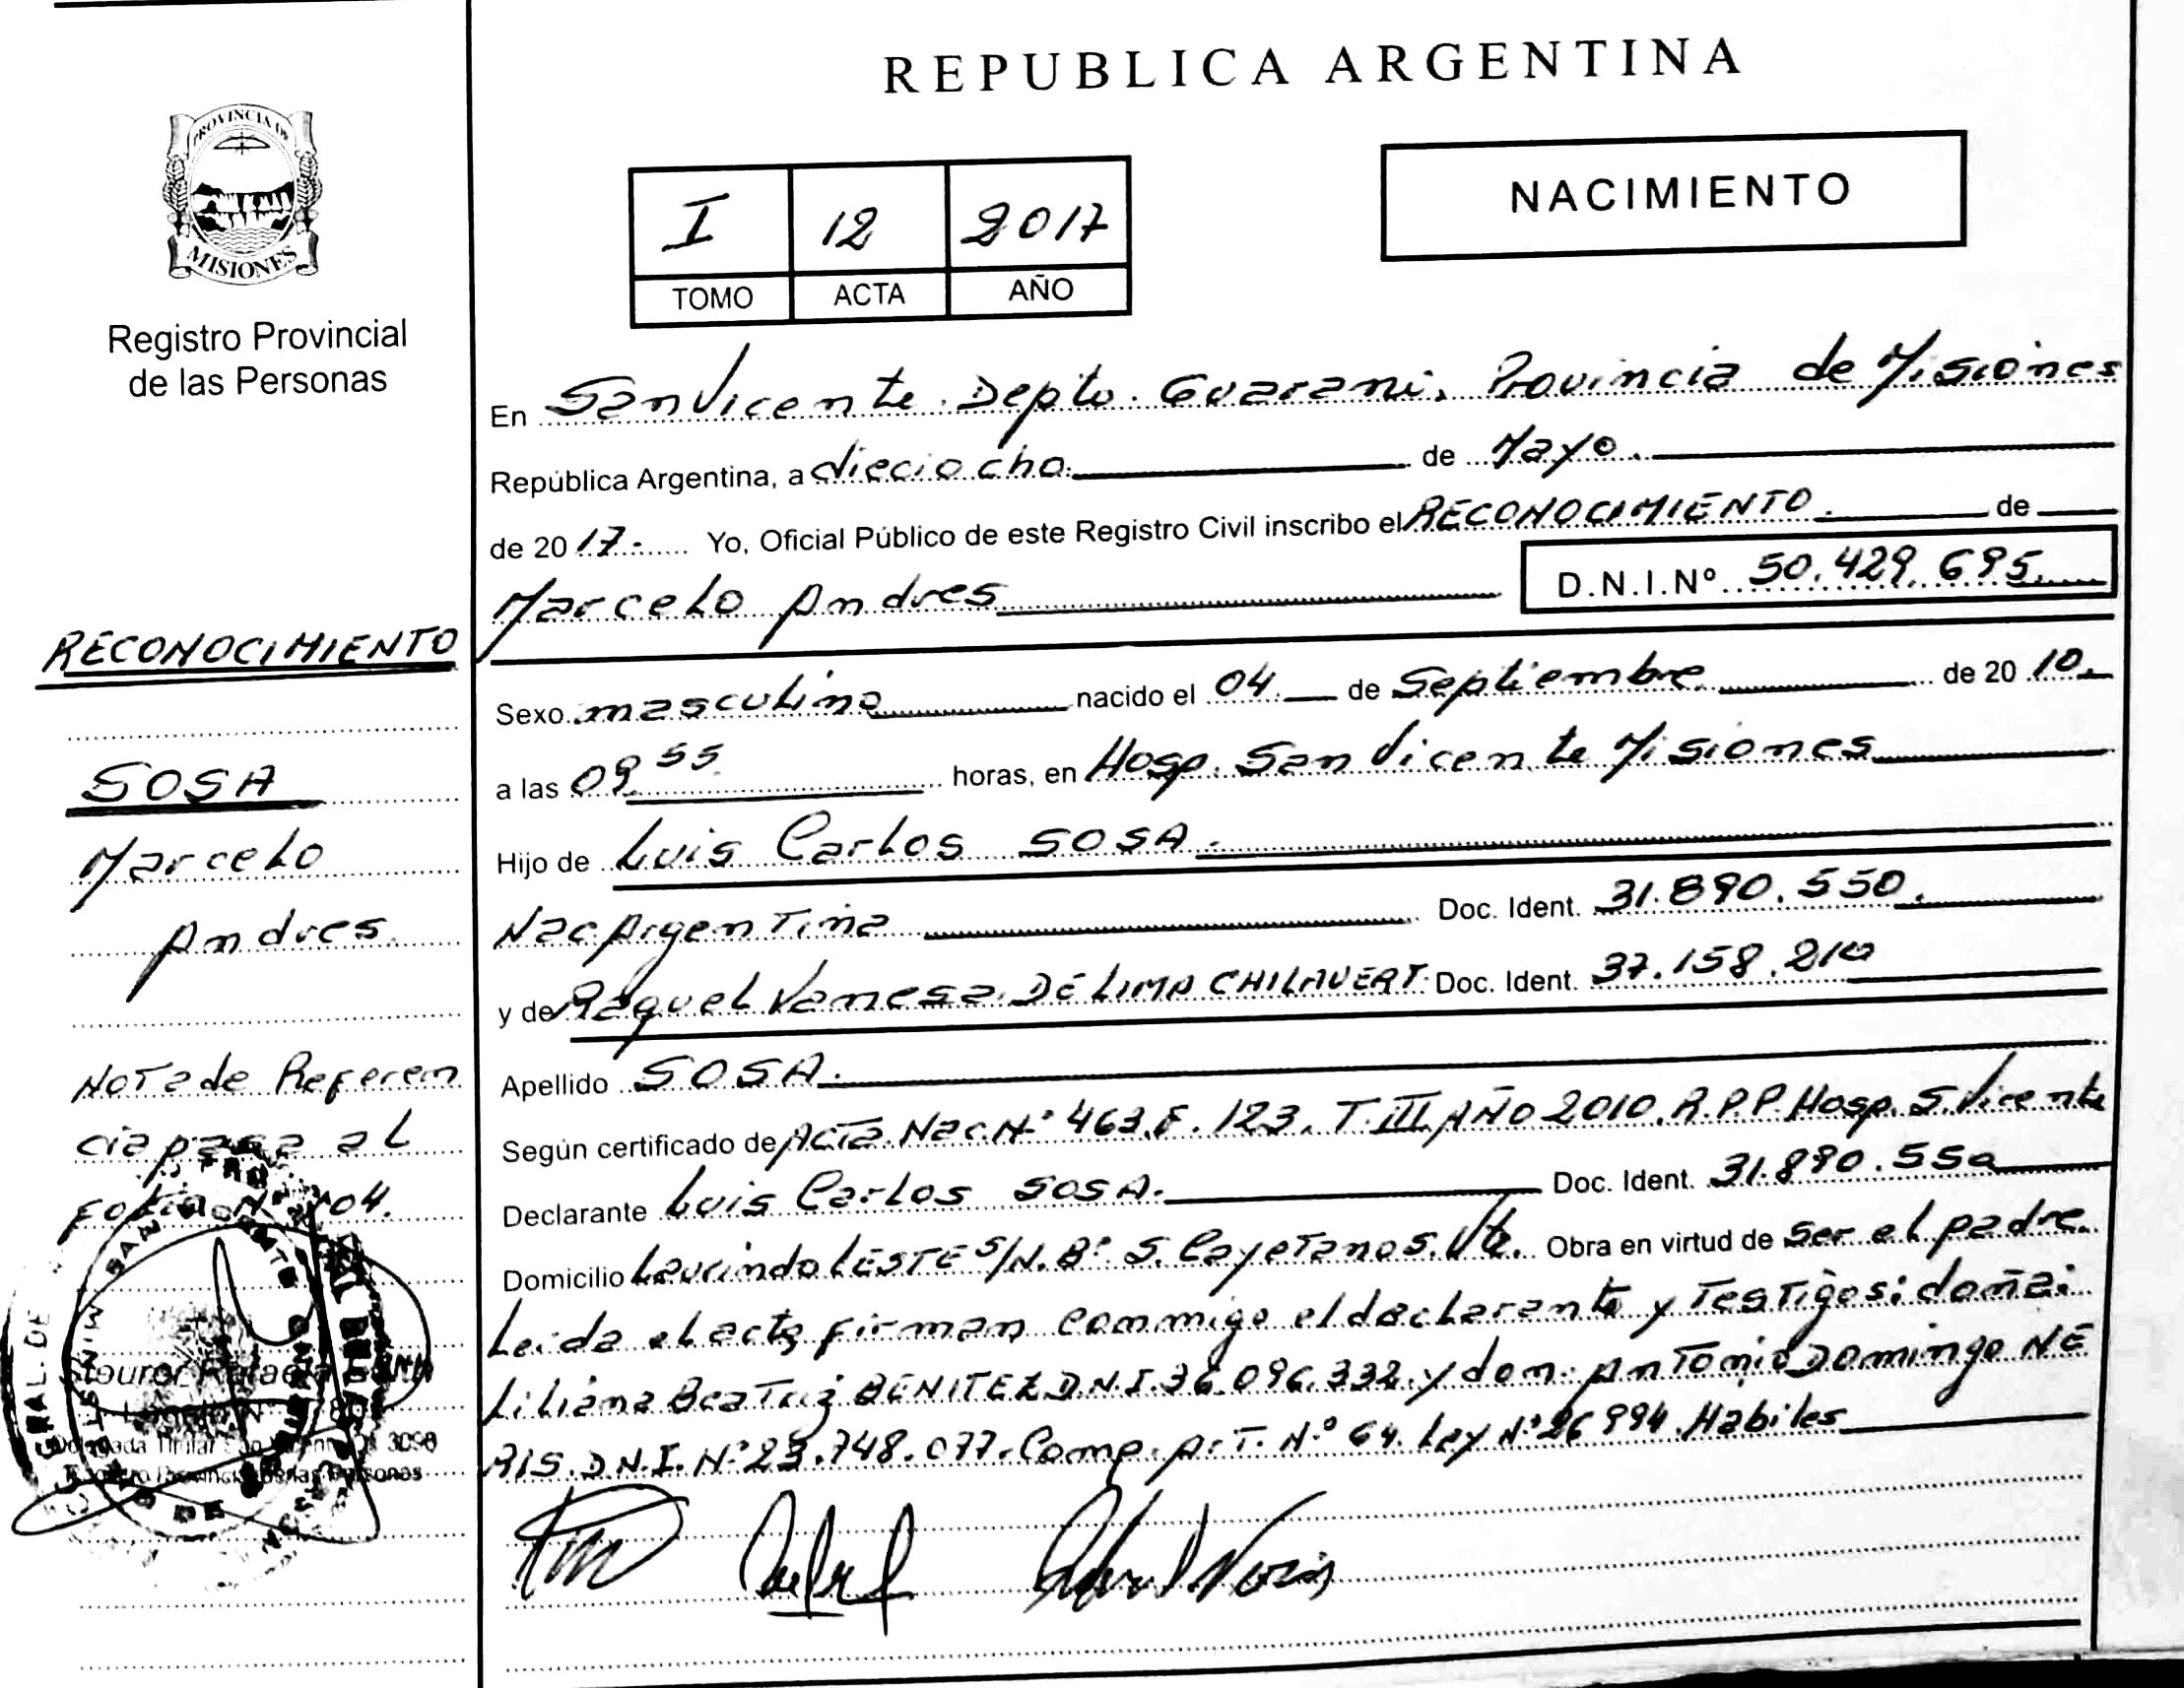 REPUBLICA ARGENTINA
PROVINCIA DE
MISIONES
Registro Provincial
de las Personas
I 12 2017
TOMO ACTA AÑO
NACIMIENTO
En San Vicente. Depto. Guarani. Provincia de Misiones
República Argentina, a dieciocho. de Mayo.
de 2017.- Yo, Oficial Público de este Registro Civil inscribo el RECONOCIMIENTO. de
Marcelo Andres D.N.I.Nº 50.429.695.
Sexo masculino nacido el 04 de Septiembre de 2010.
a las 09 55 horas, en Hosp. San Vicente Misiones
Hijo de Luis Carlos SOSA.
Nac Argentina Doc. Ident. 31.890.550.
y de Raquel Vanesa DE LIMA CHILAVERT. Doc. Ident. 37.158.210
Apellido SOSA.
Según certificado de Acta. Nac. Nº 463. F. 123. T. III. AÑO 2010. R.P.P. Hosp. S. Vicente
Declarante Luis Carlos SOSA. Doc. Ident. 31.890.550
Domicilio LESTE S/N. Bº. S. Cayetano S. Vte. Obra en virtud de Ser el padre.
Leida el acta firman conmigo el declarante y Testigos: doña:
Liliana Beatriz BENITEZ D.N.I. 36.096.332. y don. Antonio Domingo NE
RIS. D.N.I. Nº 23.748.077. Comp. Art. Nº 64. Ley Nº 26994. Habiles
RECONOCIMIENTO
SOSA
Marcelo
Andres.
Nota de Referen
cia pasa al
04.